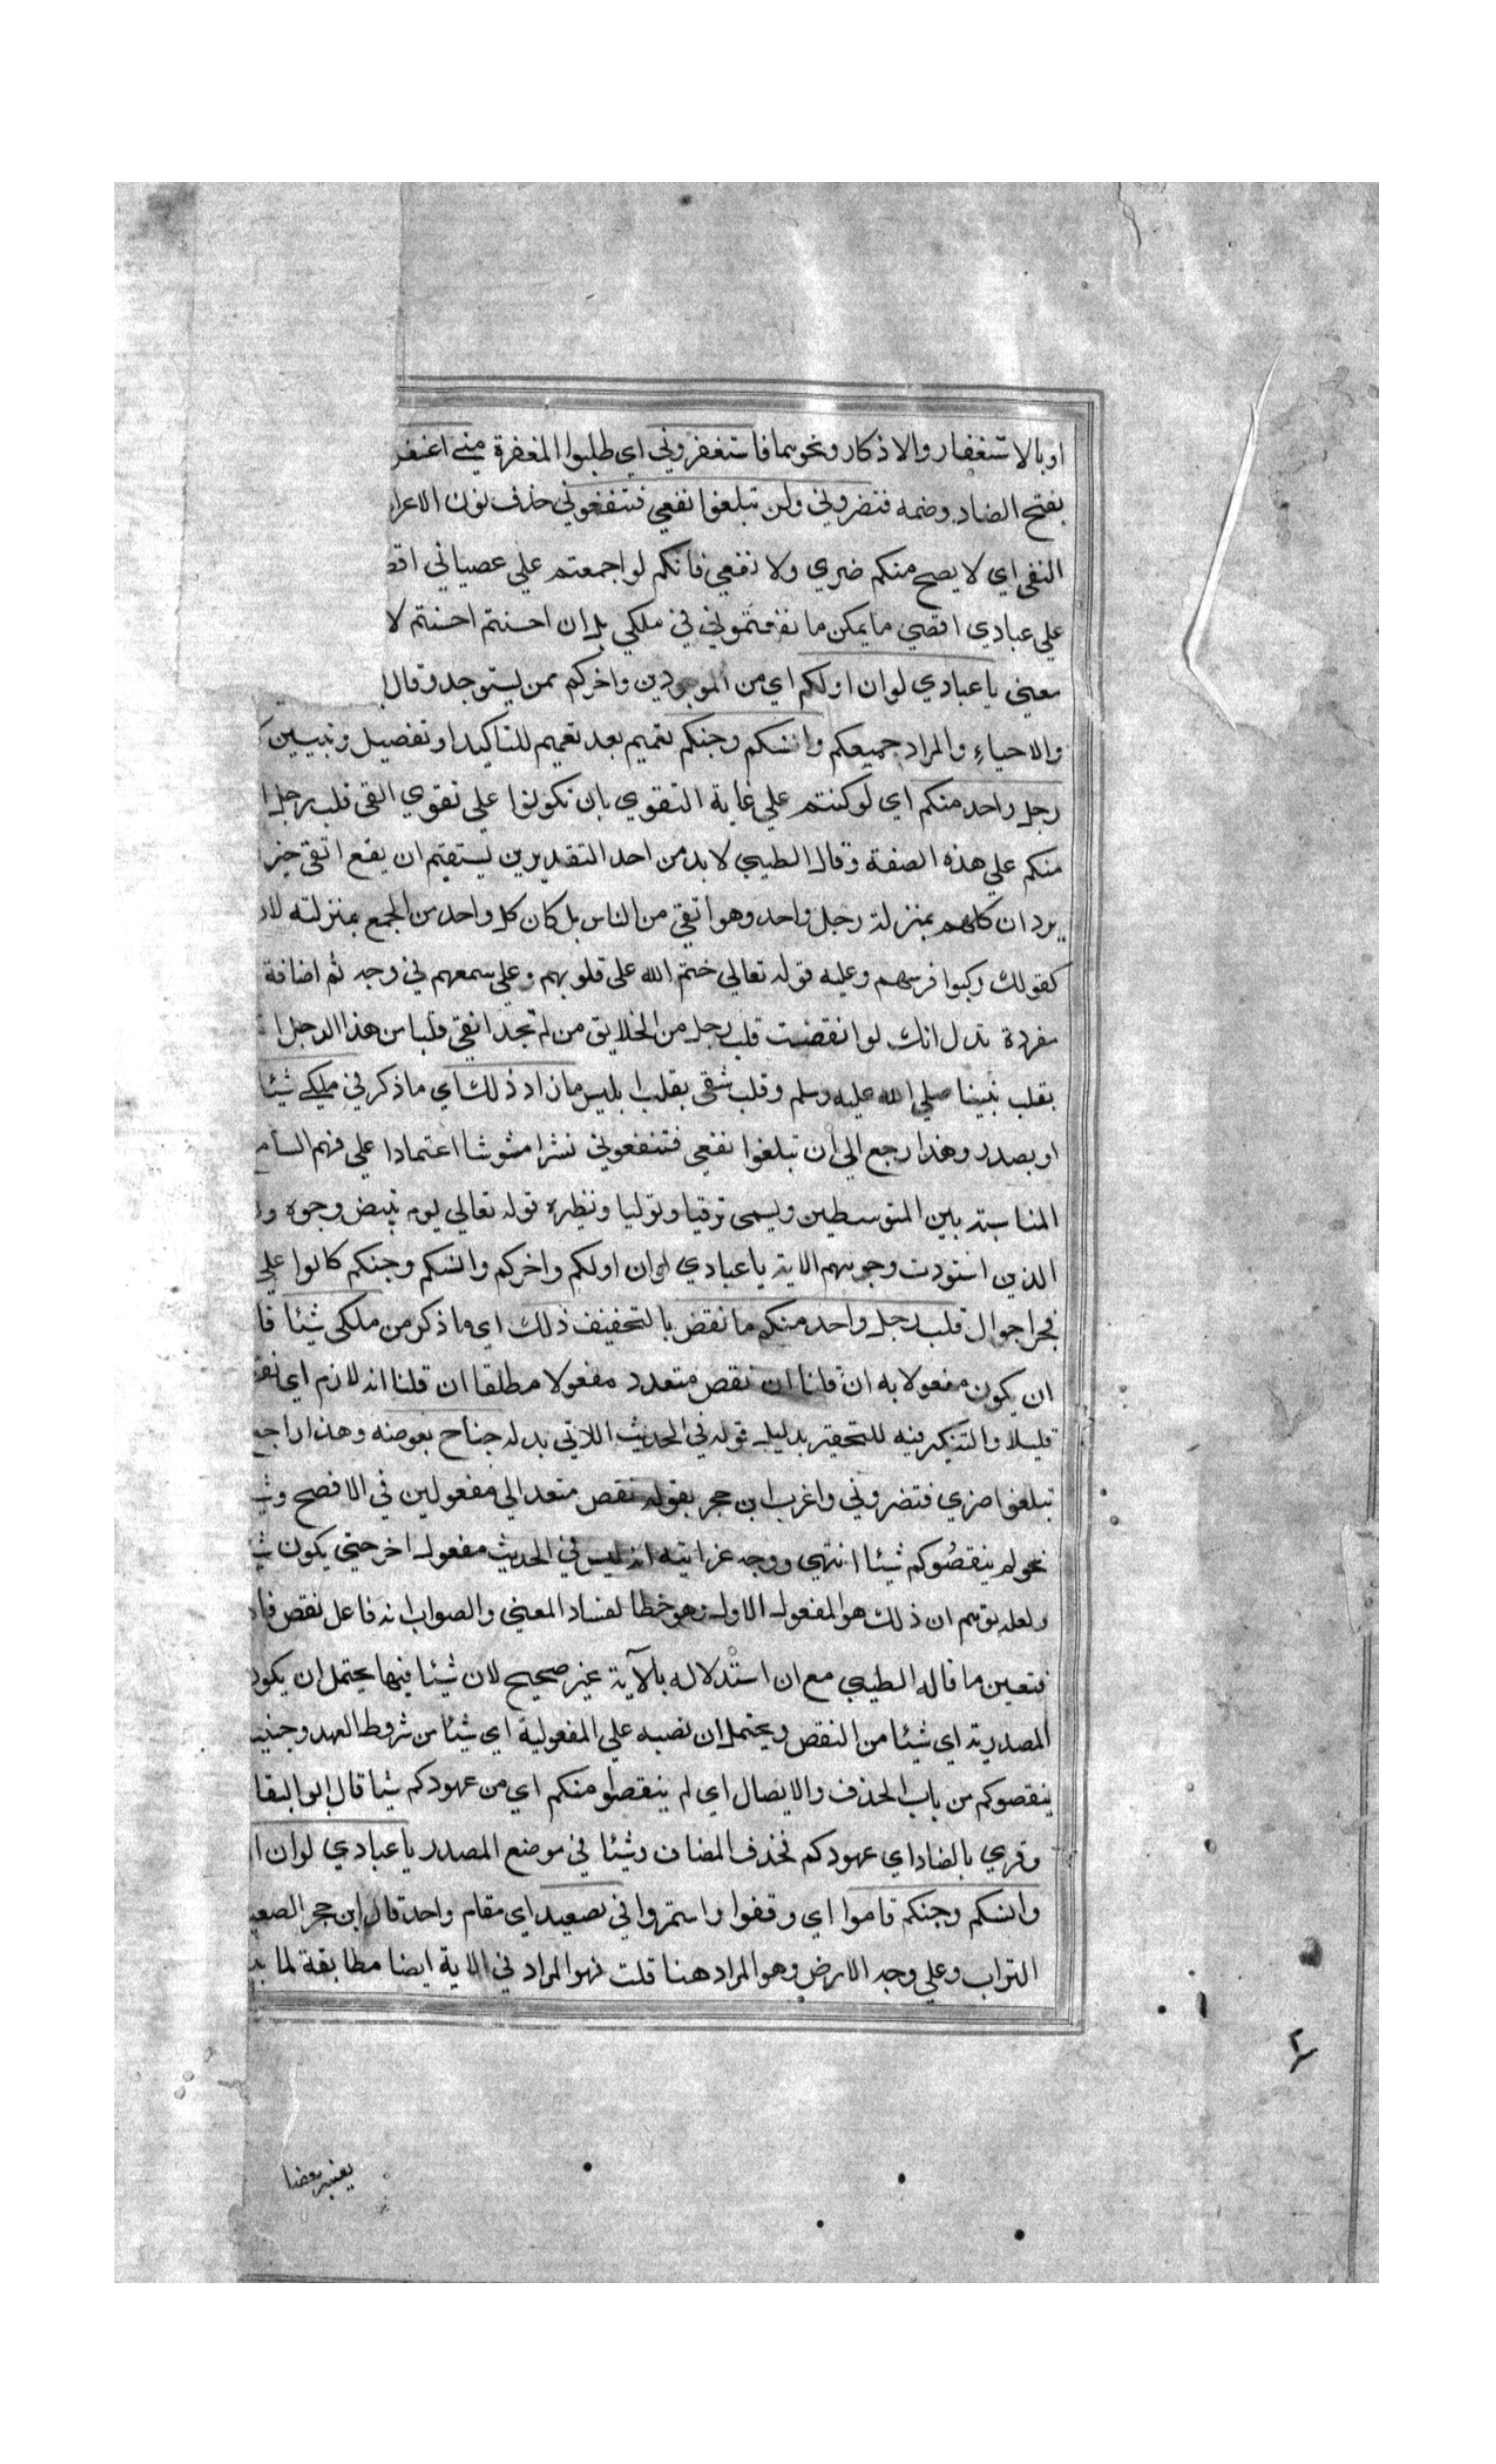 او بالاستغفار والاذكار ونحوهما فاستغفروني اي طلبوا المغفرة مني اغفر
بفتح الضاد وضمه فتضروني ولن تبلغوا نفعي فتنفعوني حذف نون الاعرا
النفي اي لا يصح منكم ضري ولا نفعي فانكم لو اجمعتم علي عصياني اقص
علي عبادي اقصي ما يمكن ما نفعتموني في ملكي بل ان احسنتم احسنتم لا
معني يا عبادي لو ان اولكم اي من الموجودين واخركم ممن ليستوجد وقال
والاحياء والمراد جميعكم وانسكم وجنكم تعميم بعد تعميم للتاكيد او تفصيل وتبيين
رجل واحد منكم اي لو كنتم علي غاية التقوي بان تكونوا علي تقوي اتقي قلب رجل
منكم علي هذه الصفة وقال الطيبي لا بد من احد التقديرين ليستقيم ان يقع اتقي خبر
يرد ان كلهم بمنزلة رجل واحد وهو اتقي من الناس بل كان كل واحد من الجمع بمنزلته لان
كقولك ركبوا فرسهم وعليه قوله تعالي ختم الله علي قلوبهم وعلي سمعهم في وجه ثم اضافة
مفردة تدل انك لو انقضت قلب رجل من الخلايق من لم تجد اتقي قلبا من هذا الرجل
بقلب نبينا صلي الله عليه وسلم وقلب شقي بقلب ابليس ما زاد ذلك اي ما ذكر في ملكي شيئا
او بصدر وهذا رجع الي ان تبلغوا نفعي فتنفعوني نشرا مشوشا اعتمادا علي فهم السام
المناسبة بين المتوسطين ويسمي ترقيا وتوليا ونظيره قوله تعالي يوم تبيض وجوه و
الذين اسودت وجوههم الاية يا عبادي لو ان اولكم واخركم وانسكم وجنكم كانوا علي
فجرا جوال قلب رجل واحد منكم ما نقض بالتخفيف ذلك اي ما ذكر من ملكي شيئا قا
ان يكون مفعولا به ان قلنا ان نقص متعدد مفعولا مطلقا ان قلنا انه لازم اي نقص
قليلا والتنكير فيه للتحقير بدليل قوله في الحديث اللاتي بدله جناح بعوضه وهذا راجع
تبلغوا ضري فتضروني واغرب ابن حجر بقوله نقص متعد الي مفعولين في الافصح وشي
نحو لم ينقصوكم شيئا انتهي ووجه غرابته انه ليس في الحديث مفعول اخر حتي يكون شي
ولعله يوهم ان ذلك هو المفعول الاول وهو خطا لفساد المعني والصواب انه فاعل نقص فا
فتعين ما قاله الطيبي مع ان استدلاله بالآية غير صحيح لان شيئا فيها يحتمل ان يكون
المصدرية اي شيئا من النقص ويحتمل ان نصبه علي المفعولية اي شيئا من شروط العهد وحني
ينقصوكم من باب الحذف والايصال اي لم ينقصوا منكم اي من عهودكم شيا قال ابو البقا
وقري بالضاد اي عهودكم فحذف المضاف وشيئا في موضع المصدر يا عبادي لو ان ا
وانسكم وجنكم قاموا اي وقفوا واستمروا في صعيد اي مقام واحد قال ابن حجر الصعيد
التراب وعلي وجه الارض وهو المراد هنا قلت فهو المراد في الاية ايضا مطابقة لما